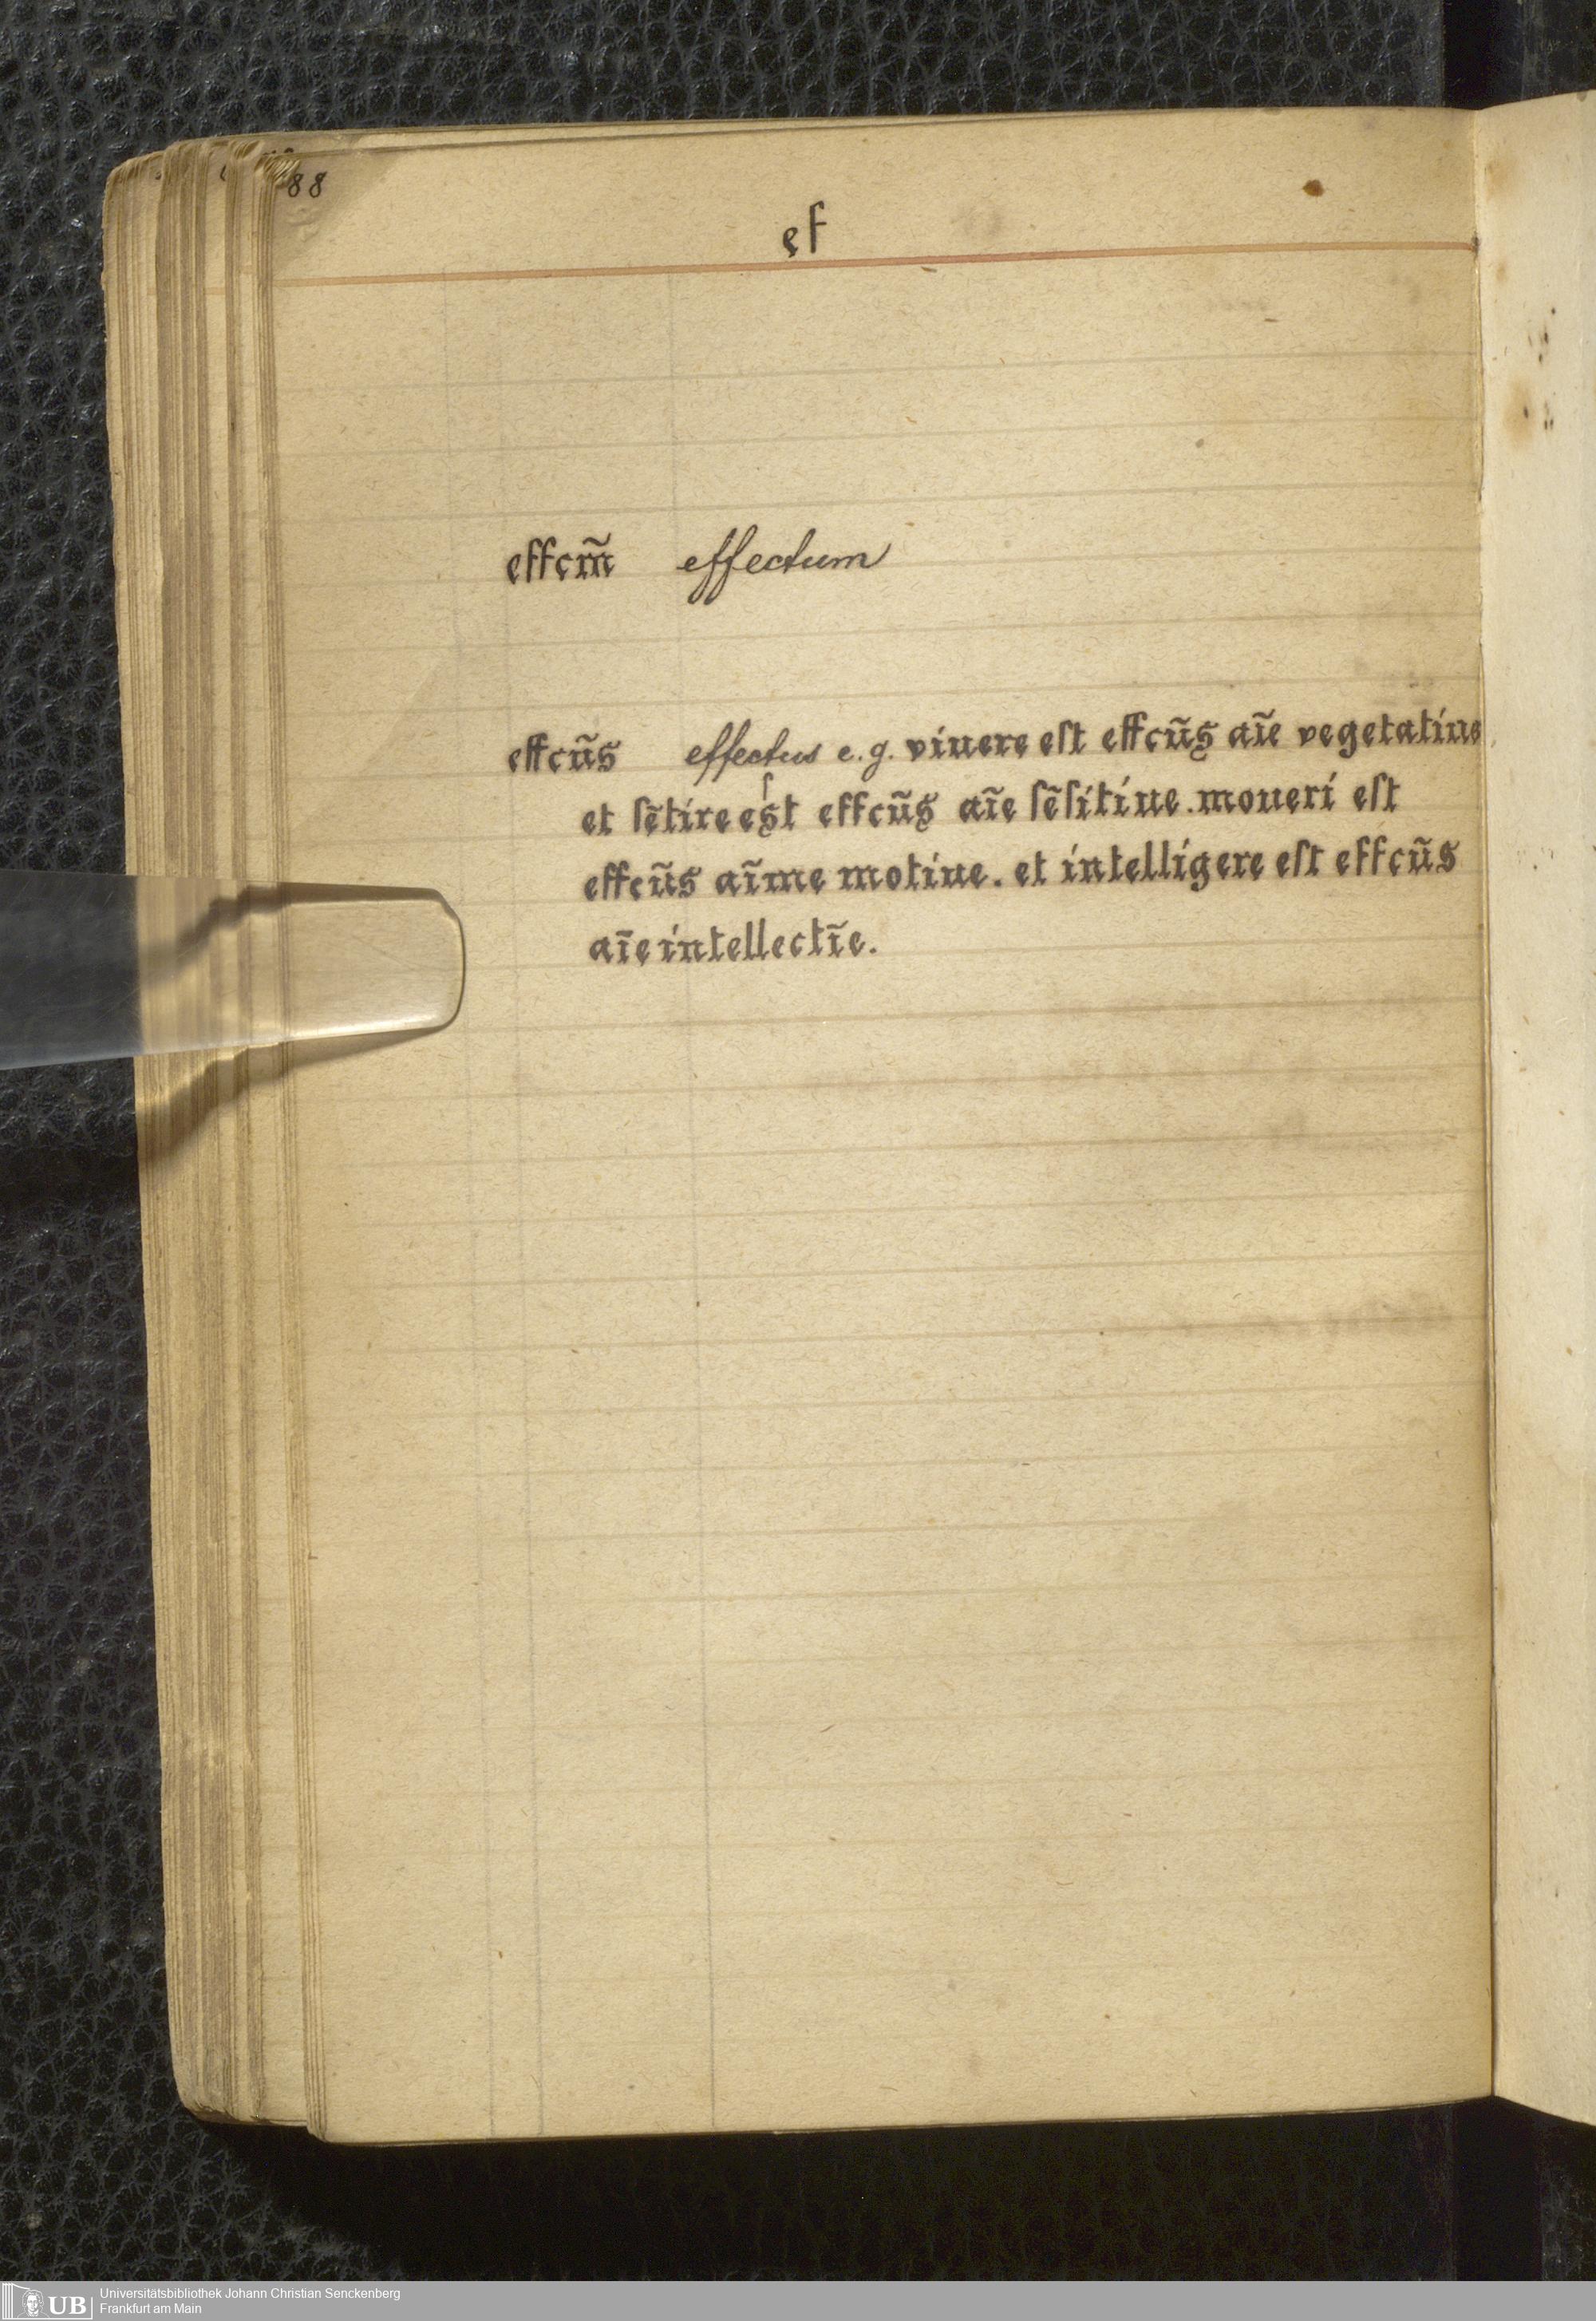 88
ef
effcm̃ effectum
effcũs effectus e.g. viuere eſt effcũs aĩe vegetatiue
et ſẽtire eſt effcũs aĩe ſẽſitiue. moueri eſt
effcũs aĩme motiue. et intelligere eſt effcũs
aĩe intellectĩe.
UB Universitätsbibliothek Johann Christian Senckenberg
Frankfurt am Main